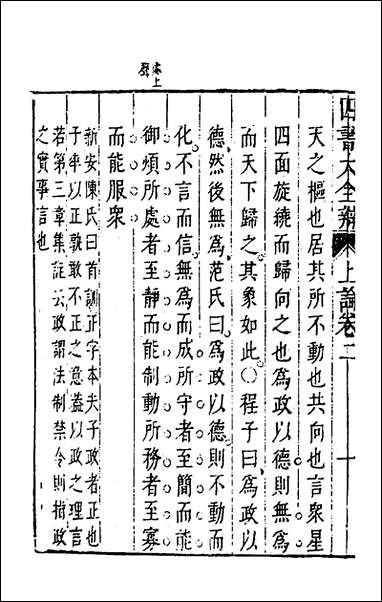 四書大全辨 上論卷二 十
天之樞也居其所不動也共向也言衆星
四面旋繞而歸向之也爲政以德則無爲
而天下歸之其象如此○程子曰爲政以
德然後無爲范氏曰爲政以德則不動而
化不言而信無爲而成所守者至簡而能
御煩所處者至靜而能制動所務者至寡
而能服衆
新安陳氏曰首訓正字本夫子政者正也
子率以正孰敢不正之意蓋以政之理言
若第三章集註云政謂法制禁令則指政
之實事言也